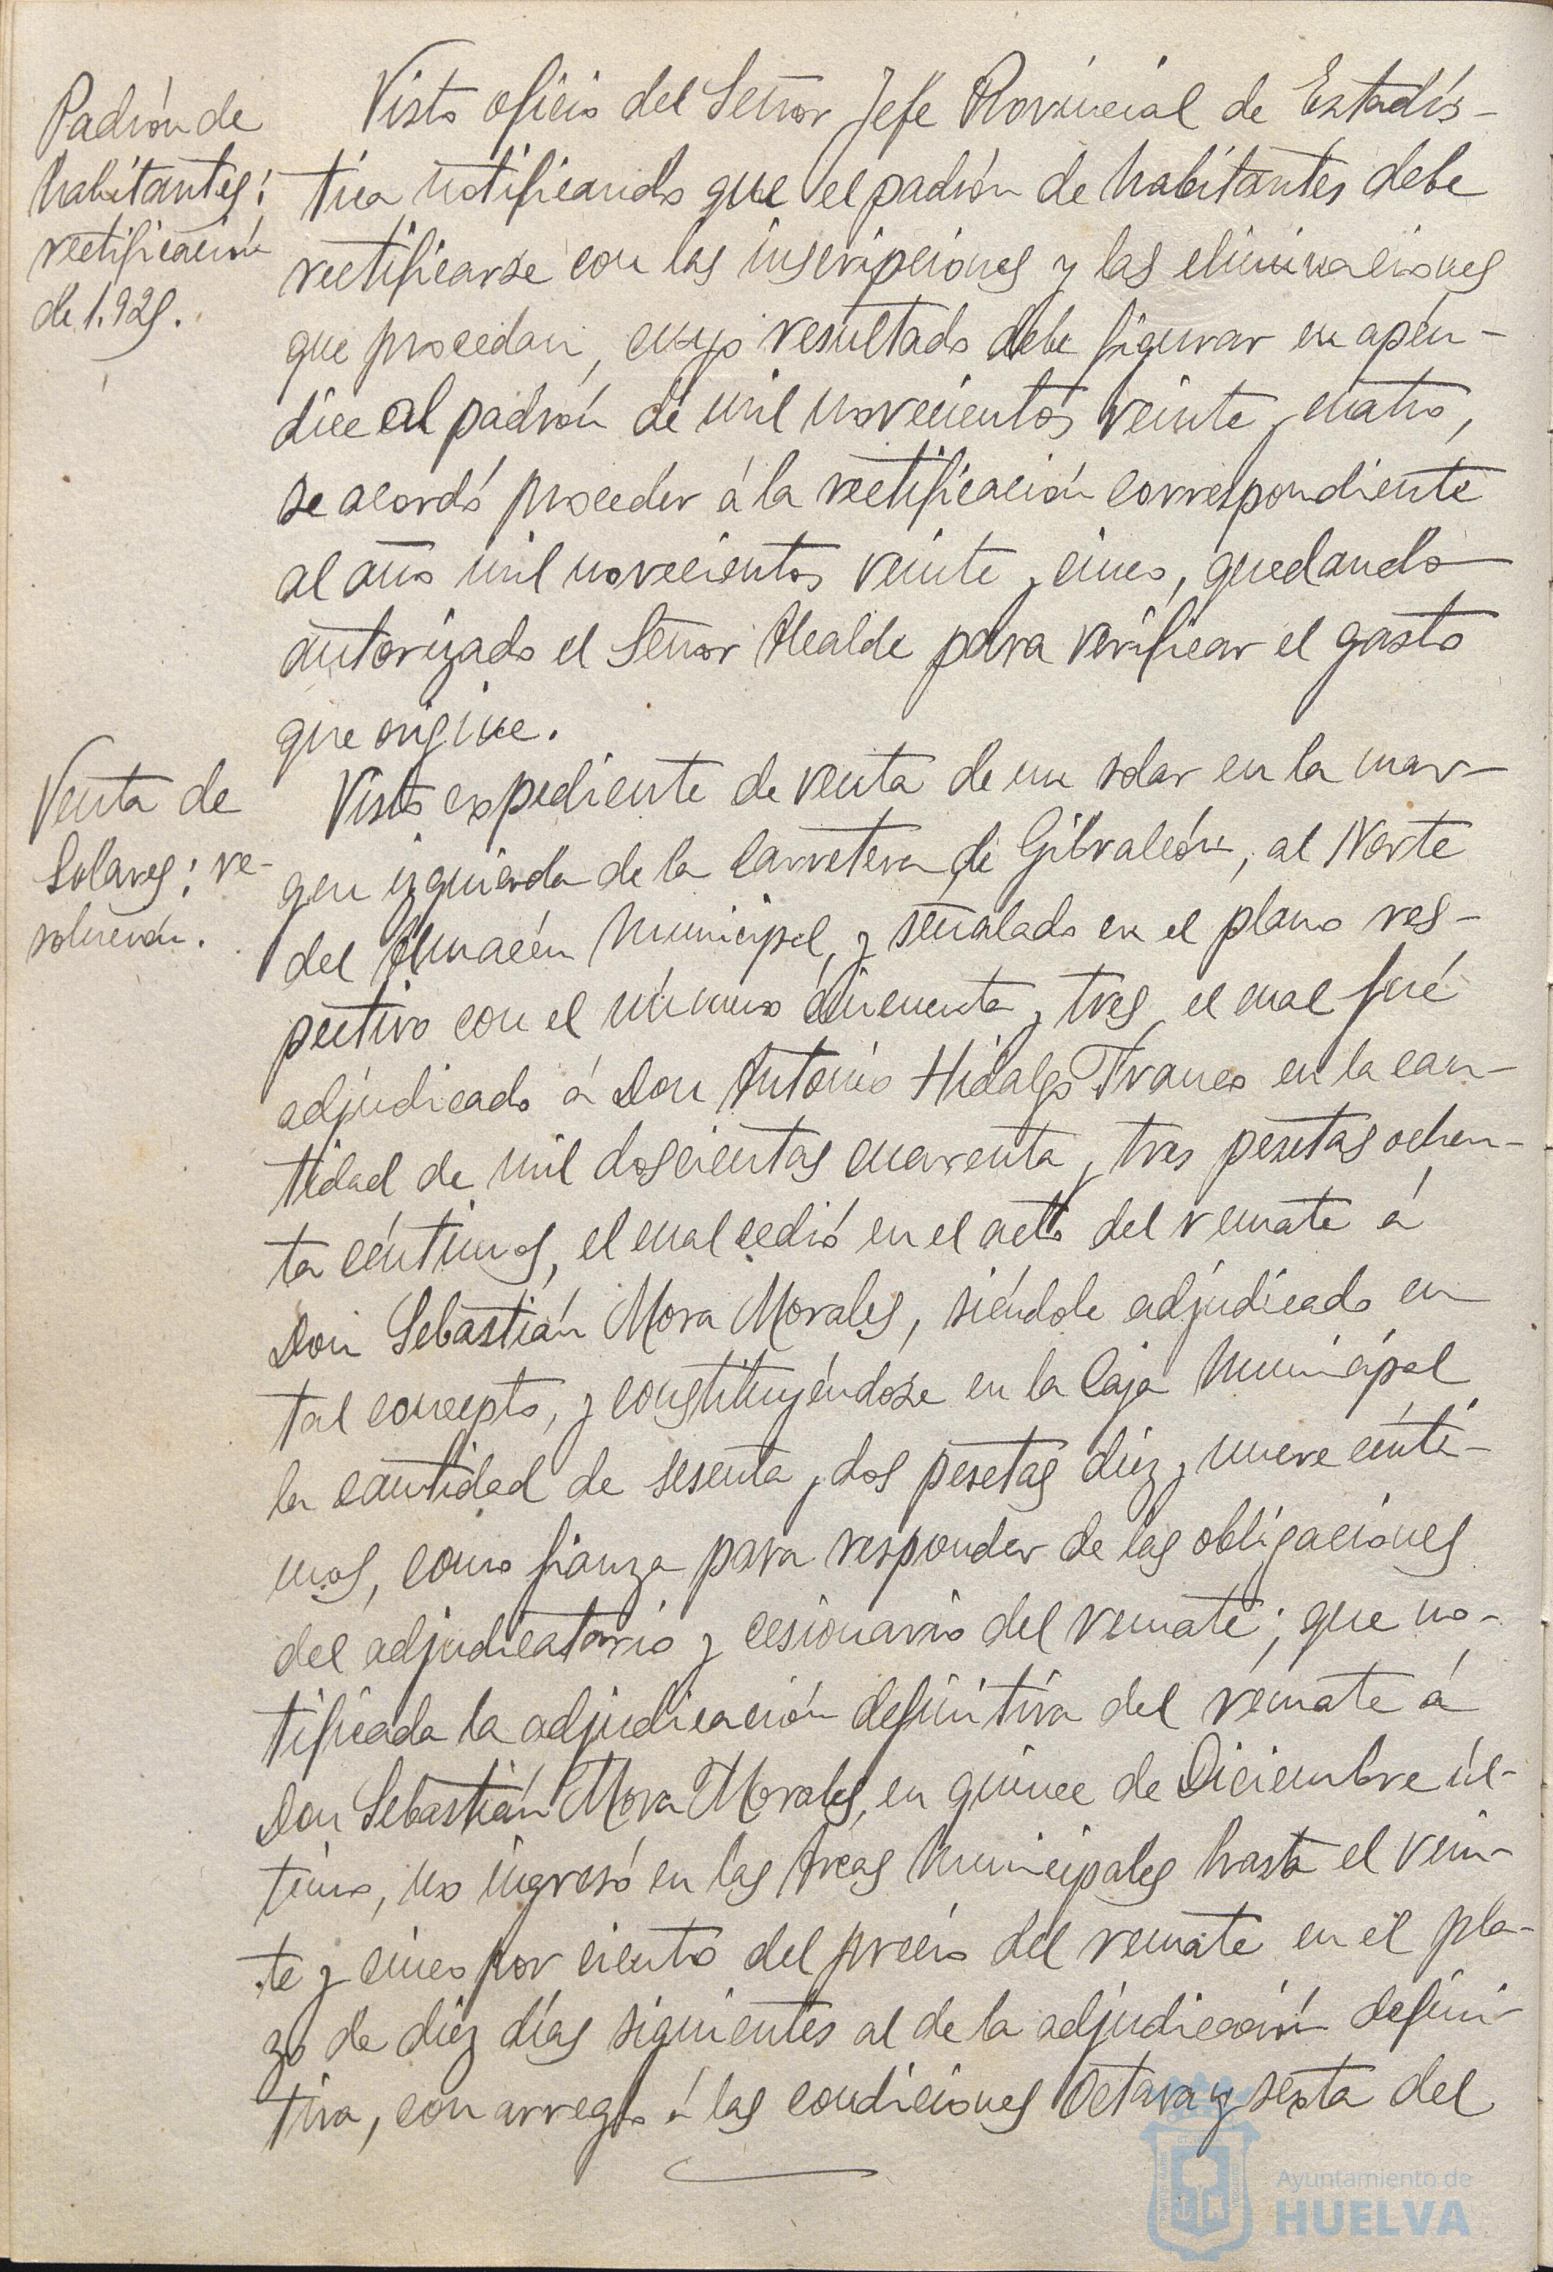 Padrón de
habitantes:
rectificación
de 1.925.
Visto oficio del Señor Jefe Provincial de Estadís-
tica notificando que el padrón de habitantes debe
rectificarse con las inscripciones y las eliminaciones
que procedan, cuyo resultado debe figurar en apén-
dice al padrón de mil novecientos veinte y cuatro,
se acordó proceder á la rectificación correspondiente
al año mil novecientos veinte y cinco, quedando
autorizado el Señor Alcalde para verificar el gasto
que origine.
Venta de
Solares: re-
solución.
Visto expediente de venta de un solar en la mar-
gen izquierda de la Carretera de Gibraleón, al Norte
del Almacén Municipal, y señalado en el plano res-
pectivo con el número cincuenta y tres, el cual fué
adjudicado á Don Antonio Hidalgo Franco en la can-
tidad de mil doscientas cuarenta y tres pesetas ochen-
ta céntimos, el cual cedió en el acto del remate á
Don Sebastián Mora Morales, siéndole adjudicado en
tal concepto, y constituyéndose en la Caja Municipal
la cantidad de sesenta y dos pesetas diez y nueve cénti-
mos, como fianza para responder de las obligaciones
del adjudicatario y cesionario del remate; que no-
tificada la adjudicación definitiva del remate á
Don Sebastián Mora Morales, en quince de Diciembre úl-
timo, no ingresó en las Arcas Municipales hasta el vein-
te y cinco por ciento del precio del remate en el pla-
zo de diez días siguientes al de la adjudicación defini-
tiva, con arreglo á las condiciones Octava y sexta del
Ayuntamiento de
HUELVA